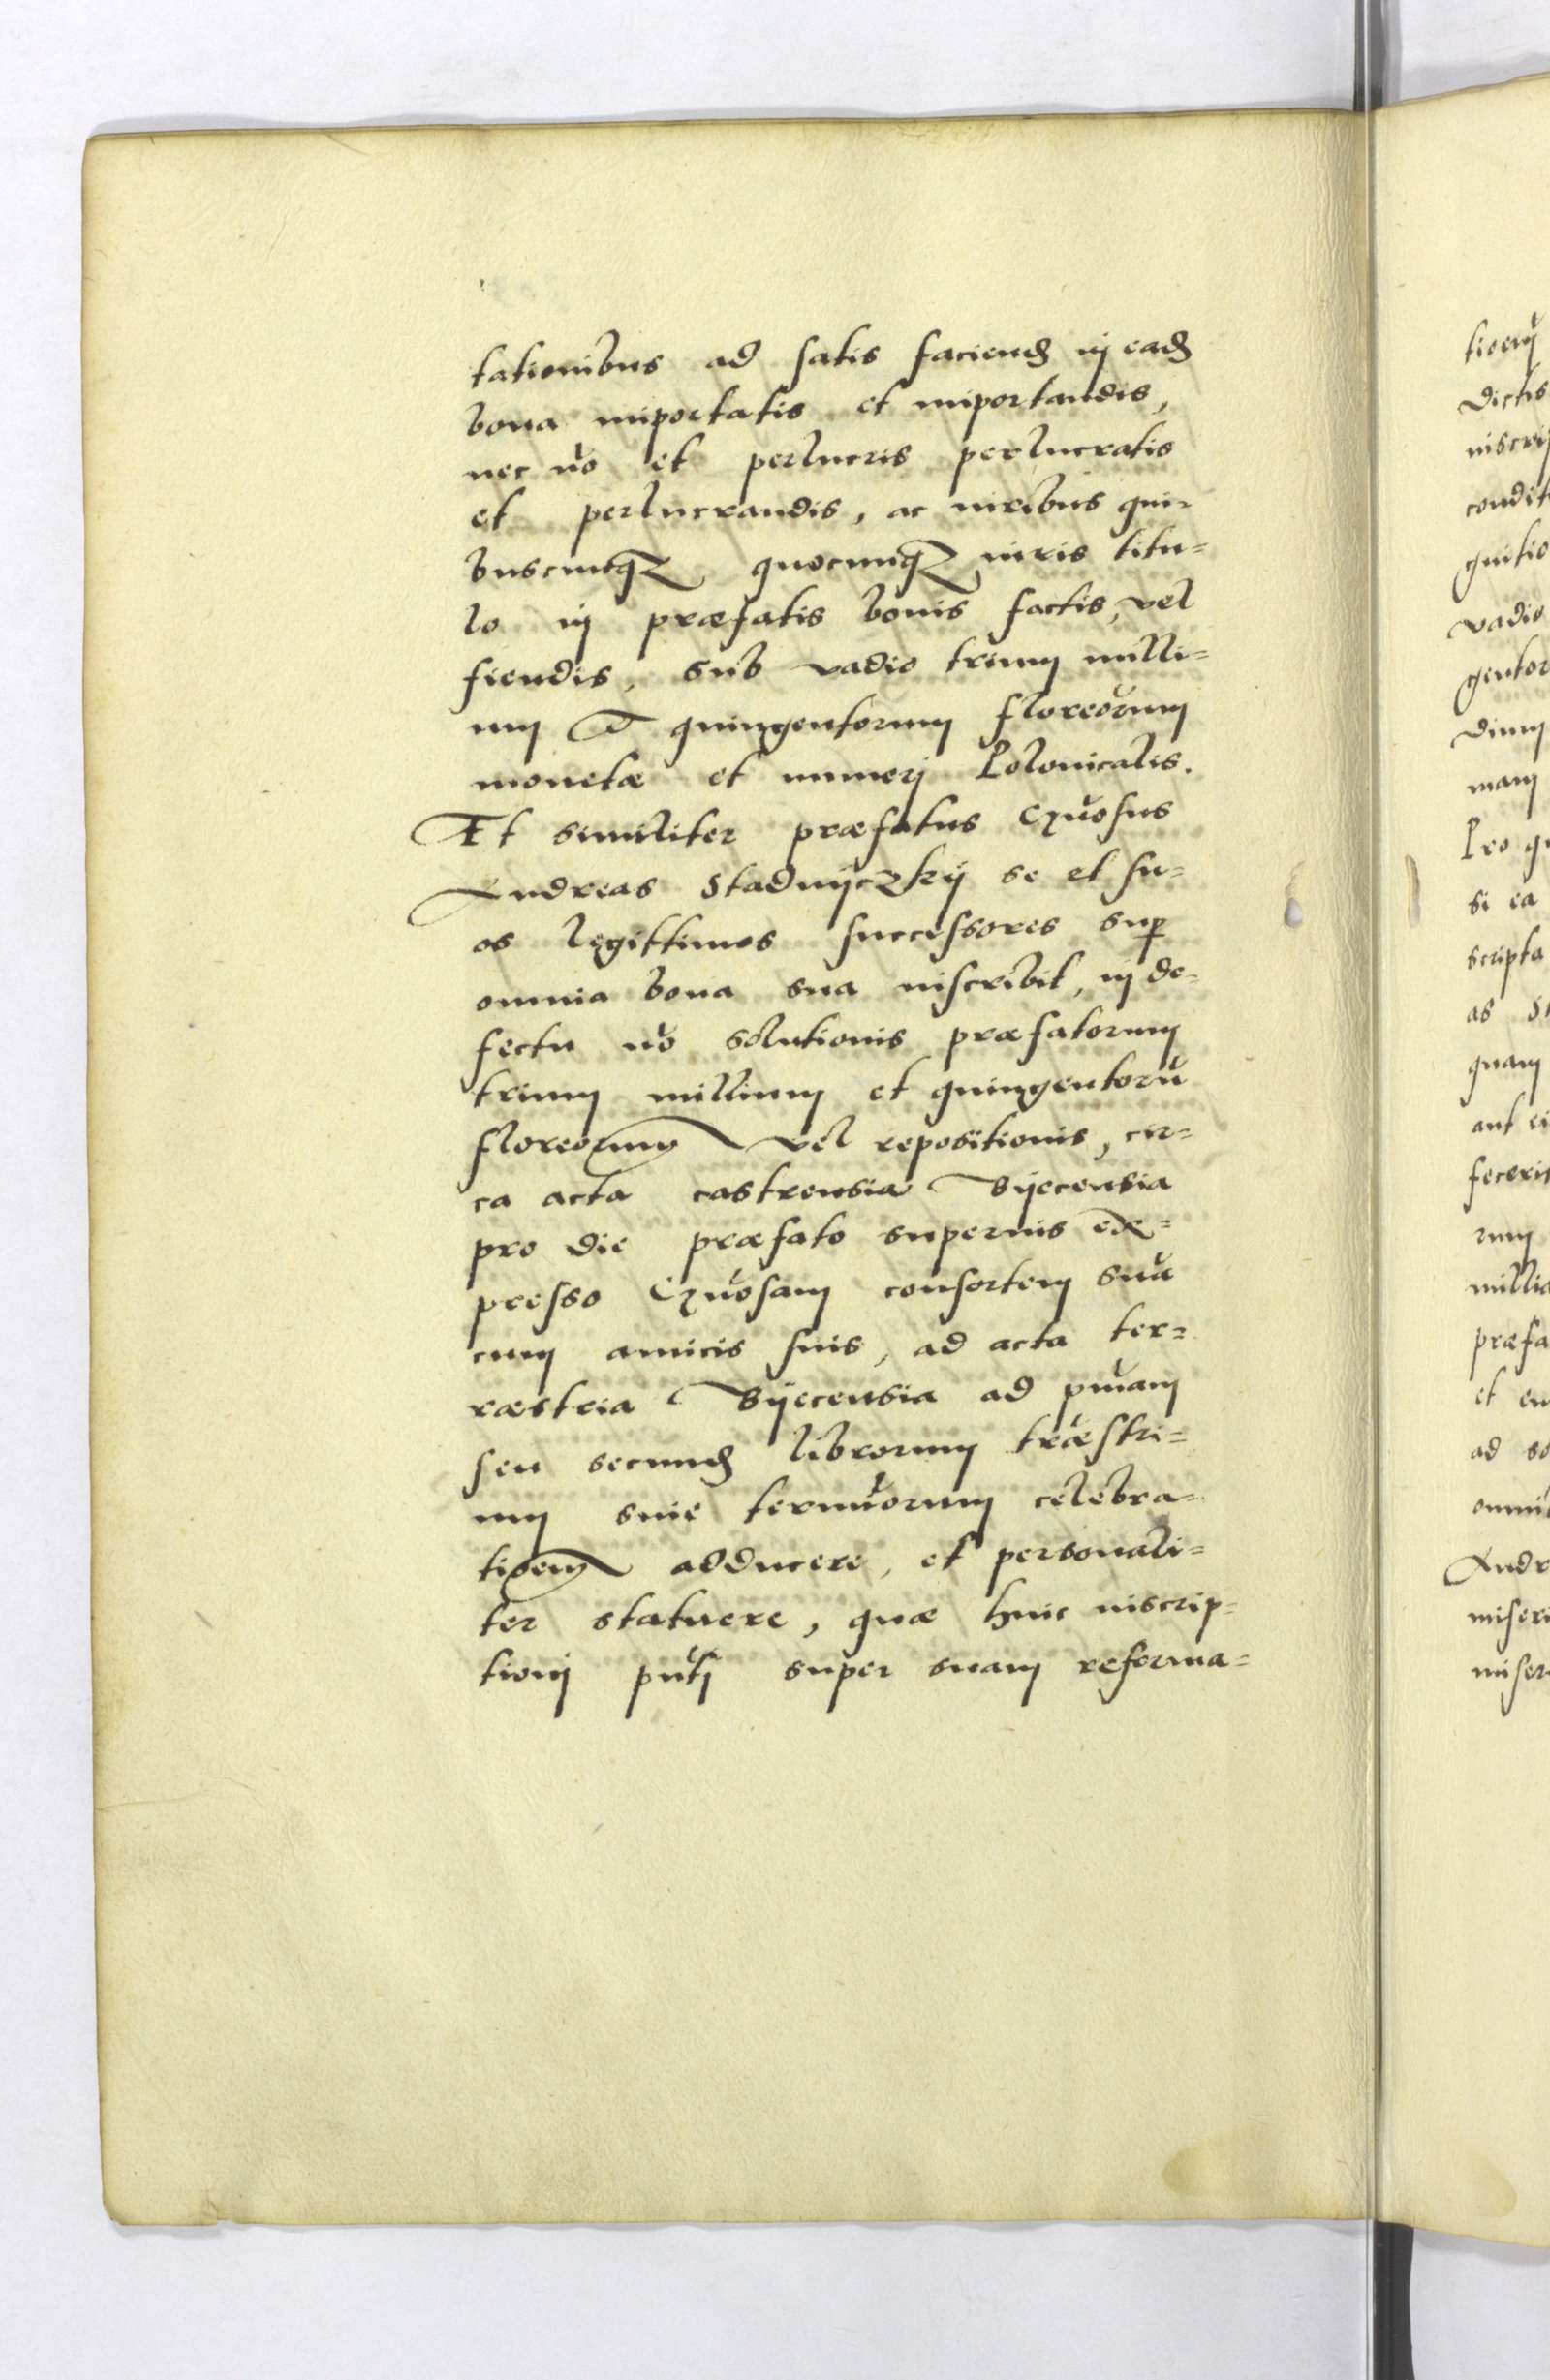 tationibus ad satis faciend in ead
bona importatis et importandis,
nec nō et perlucris perlucratis
et perlucrandis, ac iuribus qui-
buscunq quocunq iuris titu=
lo in præfatis bonis factis, vel
fiendis, sub vadio trium milli=
um et quingentorum floreorum
monetæ et numerj Polonicalis.
Et similiter præfatus Gnosus
Andreas Stadnÿczkÿ se et su=
os legittimos successores sup
omnia bona sua inscribit, in de=
fectu nō solutionis præfatorum
trium millium et quingentorū
floreorum vel repositionis, cir=
ca acta castrensia Byecensia
pro die præfato superius ex=
presso Gnosam consortem suā
cum amicis suis, ad acta ter=
ræstria Byecensia ad pmam
seu secund librorum træstri=
um siue termorum celebra=
tioem adducere, et personali=
ter statuere, quæ huic inscrip=
tionj pntj super suam reforma=
tioem
dictis
inscrip
condit
gnitio
vadio
gentor
dium
mam
Pro q
si ea
scripta
as St
quam
aut ei
fecerit
rum
millia
præfa
et
ad so
omni
Andr